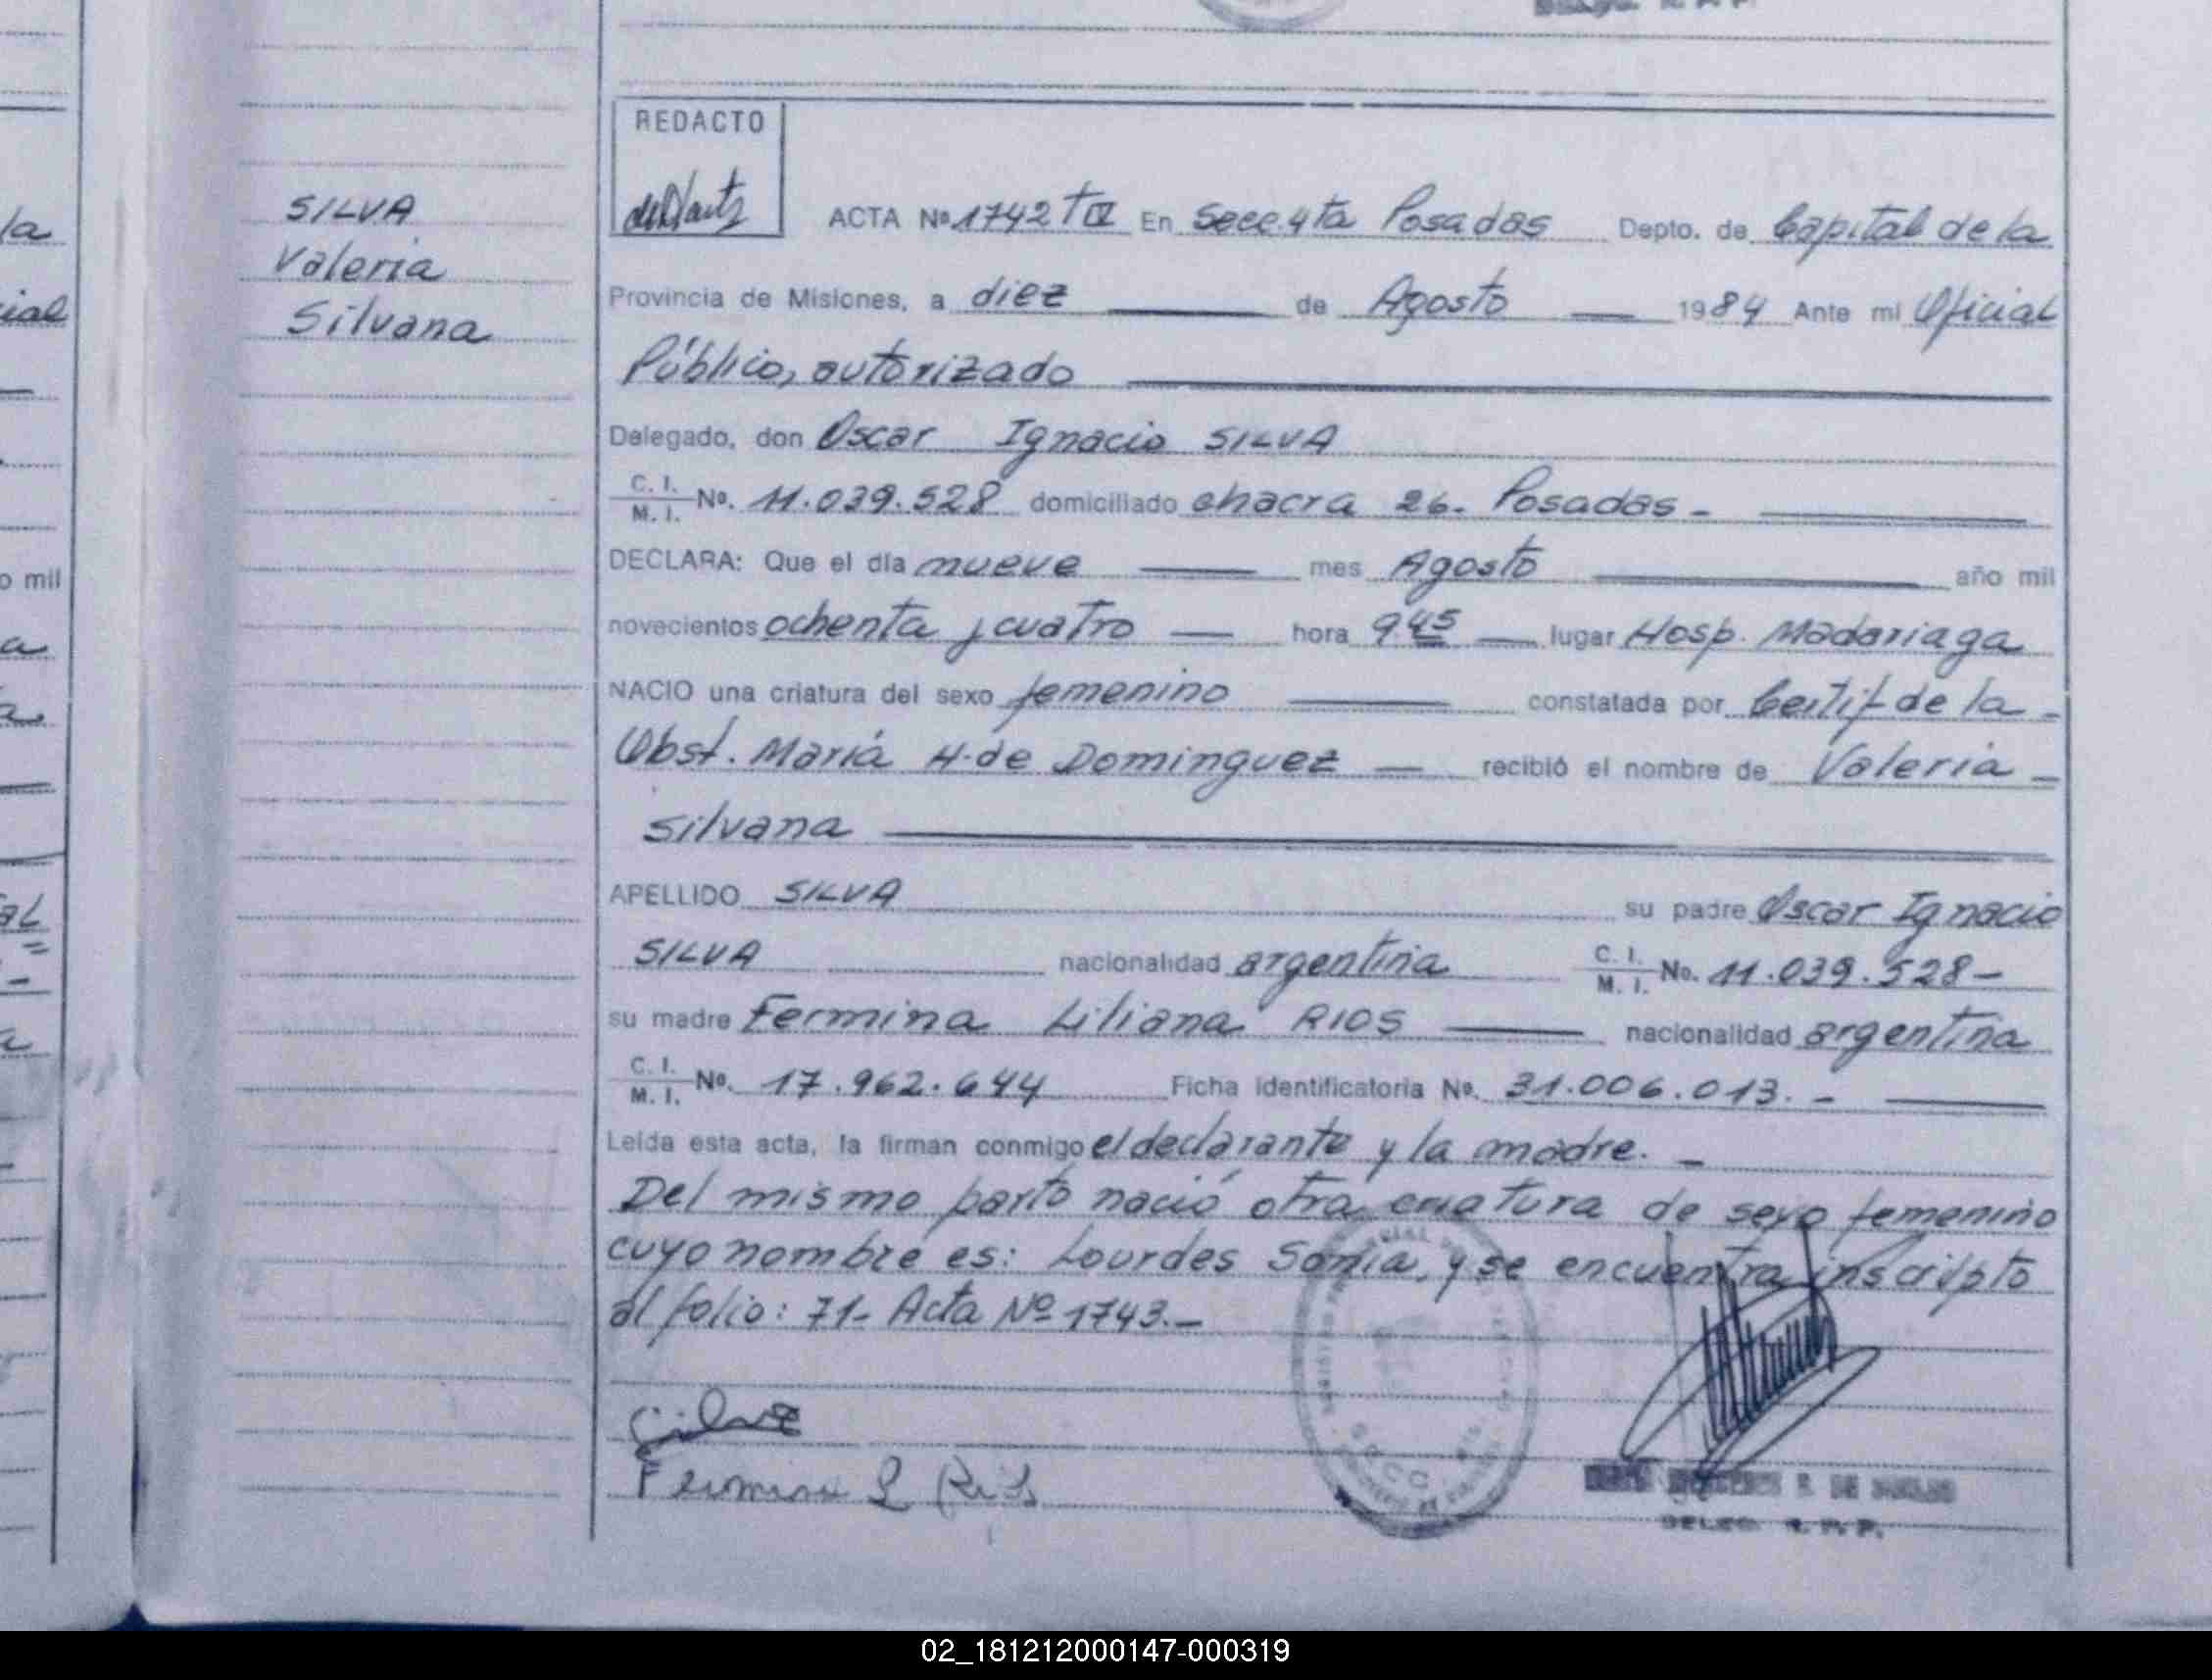 SILVA
Valeria
Silvana
REDACTO
ACTA Nº 1742 T IV En Secc. 4ta Posadas Depto. de Capital de la
Provincia de Misiones, a diez de Agosto 1984 Ante mi Oficial
Público, autorizado
Delegado, don Oscar Ignacio SILVA
C. I. M. I. Nº. 11.039.528 domiciliado chacra 26. Posadas -
DECLARA: Que el día nueve mes Agosto año mil
novecientos ochenta y cuatro hora 9.45 lugar Hosp. Madariaga
NACIO una criatura del sexo femenino constatada por Certif de la -
Obst. María H. de Dominguez recibió el nombre de Valeria
Silvana
APELLIDO SILVA su padre Oscar Ignacio
SILVA nacionalidad argentina C. I. M. I. No. 11.039.528 -
su madre Fermina Liliana RIOS nacionalidad argentina
C. I. M. I. Nº. 17.962.644 Ficha Identificatoria Nº. 31.006.013. -
Leída esta acta, la firman conmigo el declarante y la madre. -
Del mismo parto nació otra criatura de sexo femenino
cuyo nombre es: Lourdes Sonia, y se encuentra inscripto
al folio: 71- Acta Nº 1743.-
Fermina L Rios
02_181212000147-000319